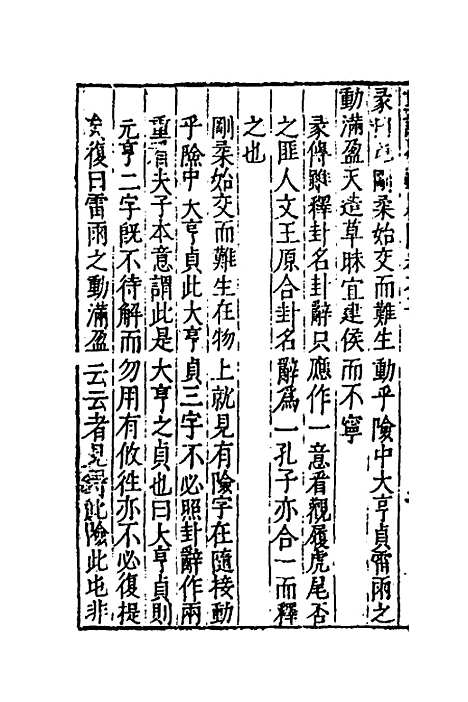 彖曰屯剛柔始交而難生動乎險中大亨貞雷雨之
動滿盈天造草昧宜建侯而不寧
彖傳雖釋卦名卦辭只應作一意看觀履虎尾否
之匪人文王原合卦名辭爲一孔子亦合一而釋
之也
剛柔始交而難生在物上就見有險字在隨接動
乎險中大亨貞此大亨貞三字不必照卦辭作兩
重看夫子本意謂此是大亨之貞也曰大亨貞則
元亨二字旣不待解而勿用有攸徃亦不必復提
復曰雷雨之動滿盈云云者見得此險此屯非